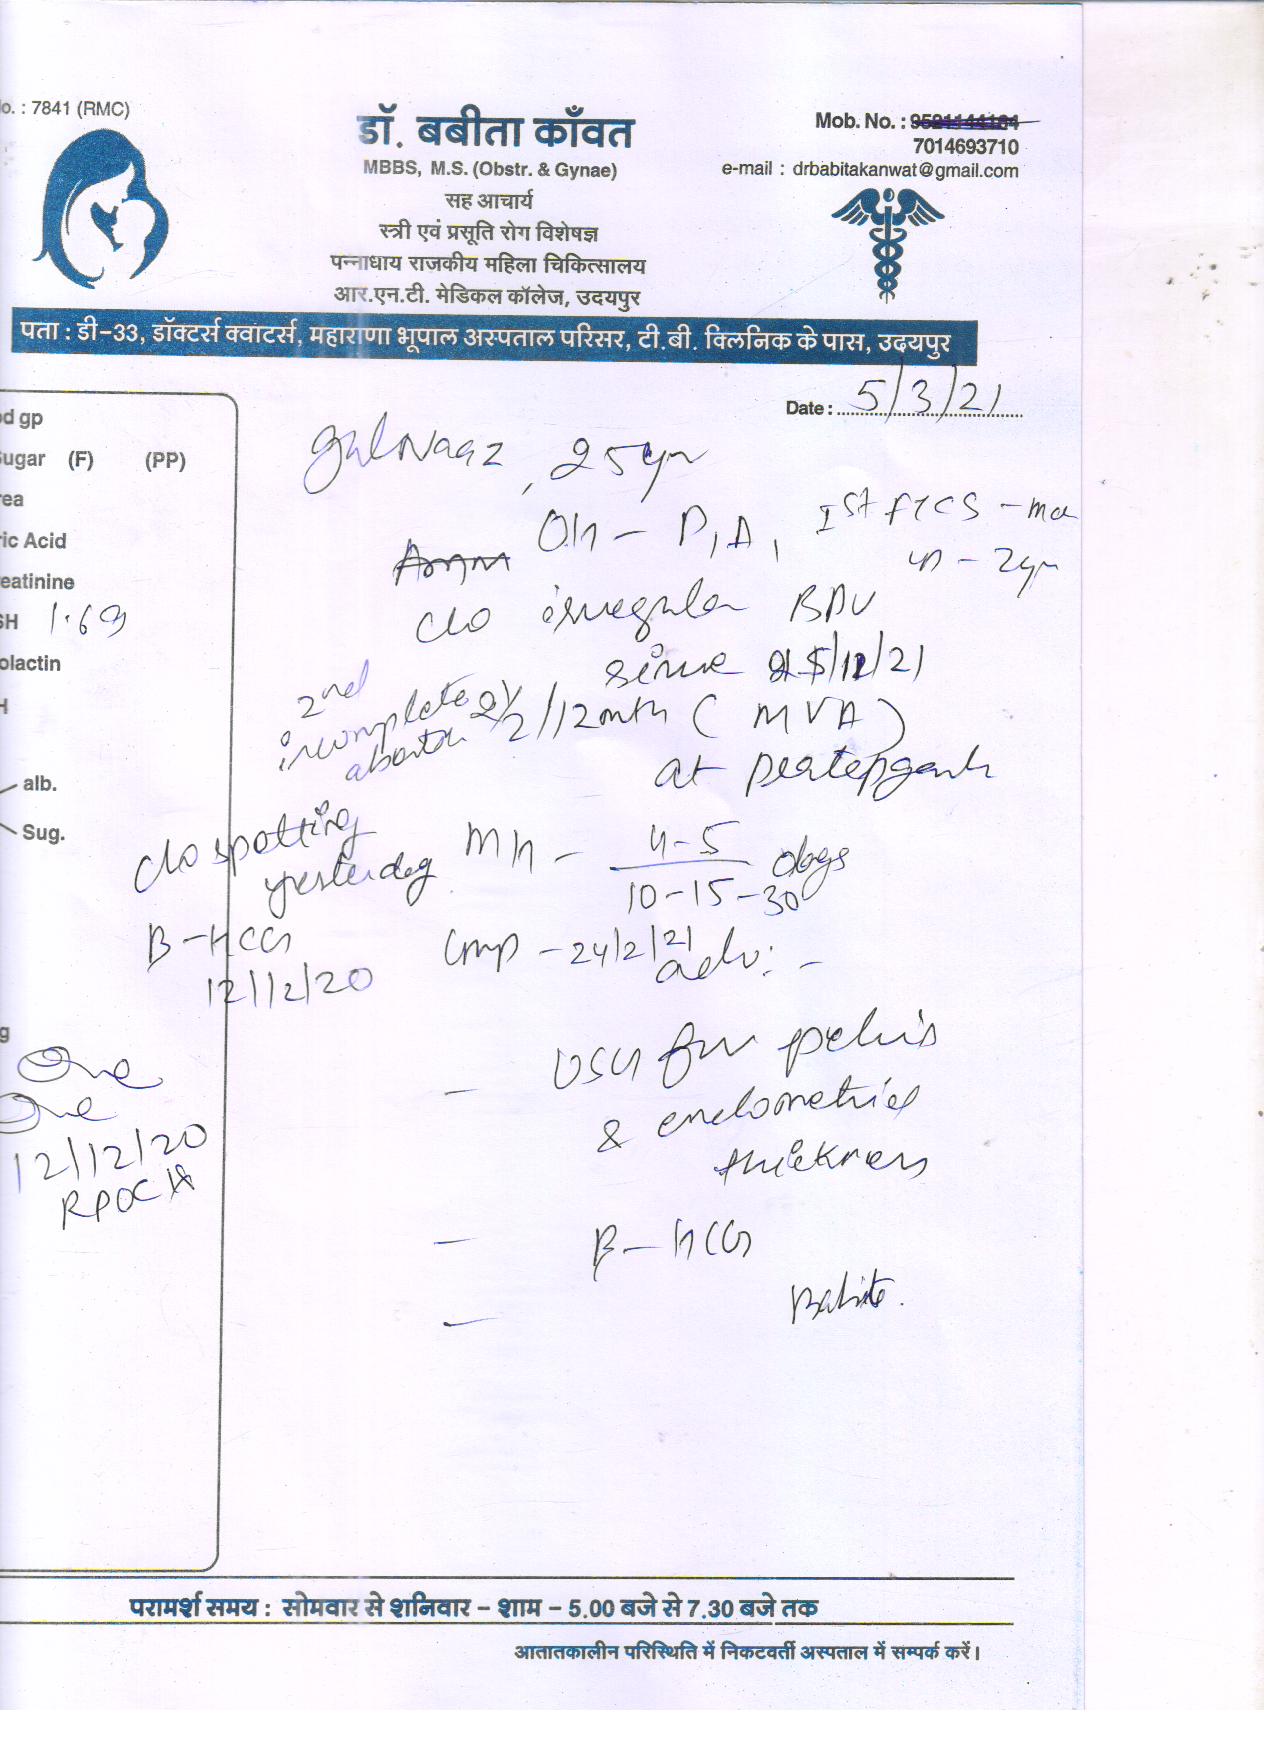 o. : 7841 (RMC)
डॉ. बबीता काँवत
MBBS, M.S. (Obstr. & Gynae)
सह आचार्य
स्त्री एवं प्रसूति रोग विशेषज्ञ
पन्नाधाय राजकीय महिला चिकित्सालय
आर.एन.टी. मेडिकल कॉलेज, उदयपुर
Mob. No. : 9521144184
7014693710
e-mail : drbabitakanwat@gmail.com
पता : डी-33, डॉक्टर्स क्वाटर्स, महाराणा भूपाल अस्पताल परिसर, टी.बी. क्लिनिक के पास, उदयपुर
Date : 5/3/21
d gp
ugar (F) (PP)
rea
ric Acid
eatinine
SH 1.69
olactin
H
alb.
Sug.
g
12/12/20
RPOC
gulNaaz, 25yr
Oh - P1A1 Ist FTCS - mch
2yr
c/o irregular BPV
since 25/12/21
2nd
incomplete
abortion
2/12mth (MVA)
at
c/o spotting
yesterday
MH - 4-5 / 10-15-30 days
B-HCG
12/12/20
Lmp - 24/2/21
adv: -
- USG for pelvis
& endometrial
thickness
- B-HCG
-
Babita.
परामर्श समय : सोमवार से शनिवार - शाम - 5.00 बजे से 7.30 बजे तक
आतातकालीन परिस्थिति में निकटवर्ती अस्पताल में सम्पर्क करें।